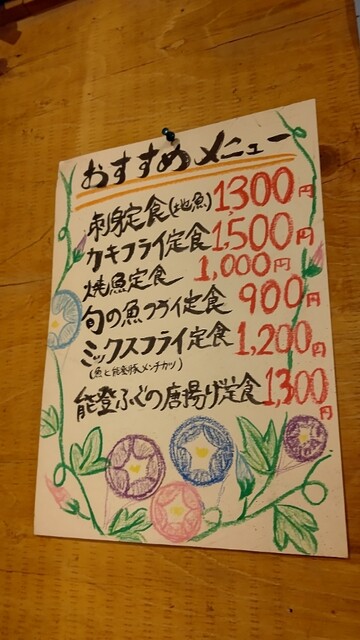 おすすめメニュー
刺身定食(地魚) 1300円
カキフライ定食 1,500円
焼魚定食 1,000円
旬の魚フライ定食 900円
ミックスフライ定食 1,200円
(魚と能登豚メンチカツ)
能登ふぐの唐揚げ定食 1,300円